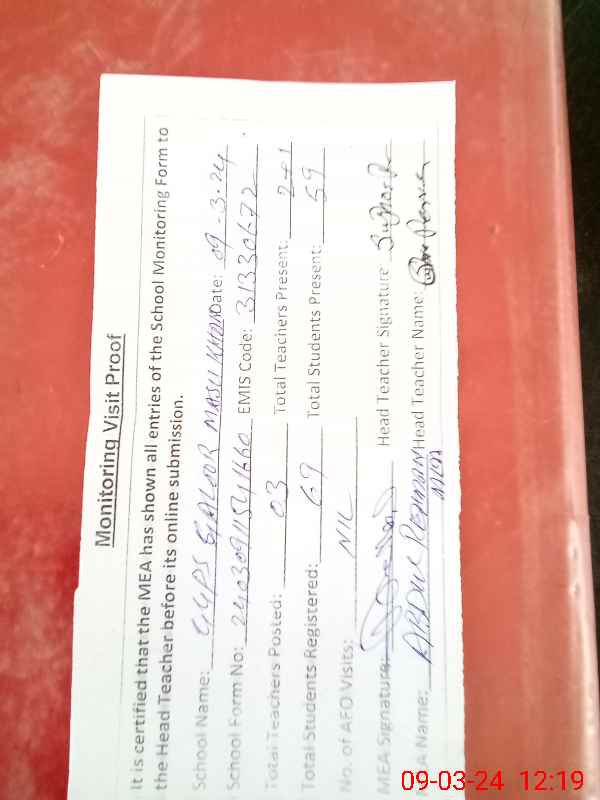 Monitoring Visit Proof
It is certified that the MEA has shown all entries of the School Monitoring Form to
the Head Teacher before its online submission.
School Name: GGPS Date: 09-3-24
School Form No: EMIS Code: 31330672
Total Teachers Posted: 03 Total Teachers Present: 2+1
Total Students Registered: 69 Total Students Present: 59
No. of AEO Visits: NIL
MEA Signature: Head Teacher Signature:
MEA Name: ABDUL REHMAN Head Teacher Name:
09-03-24 12:19